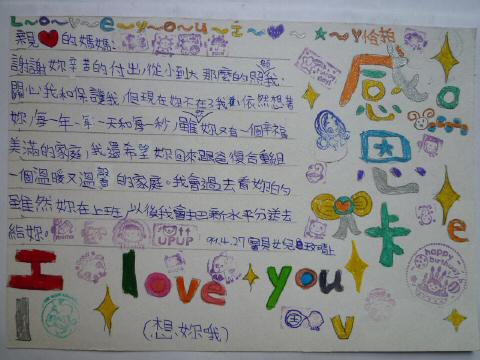 Love you
親❤的媽媽:
謝謝妳辛苦的付出,從小到大那麼的照顧我,
關心我和保護我,但現在妳不在了我,依然想著
妳,每一年、年一天和每一秒,雖妳又有一個幸福
美滿的家庭,我還希望妳回來跟爸復合重組
一個溫暖又溫馨的家庭。我會過去看妳的
雖然妳在上班,以後我會把薪水平分送去
給妳。
UPUP
94.4.27寶貝女兒
上
感
恩
I love you
(想妳哦)
Happy birthday